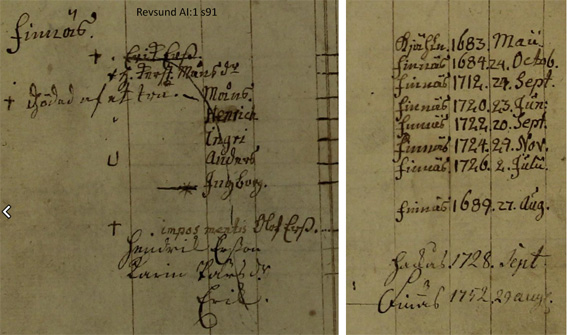 Revsund AI:1 s91
Finnäs.
† Erik Erss.
† h. Kerst. Månsdr
† dödad af et tra. Moins.
Henrich
Ingri
U Anders
Ingeborg.
† impos mentis Olof Erss.
Hendrik Ersson
Karin Larsdr
Erik.
1683. Maii.
Finnäs 1684. 24. Octob.
Finnäs 1712. 24. Sept.
Finnäs 1720. 23. Jun:
Finnäs 1722. 20. Sept.
Finnäs 1724. 27. Nov.
Finnäs 1726. 2. Julii.
Finnäs 1689. 27. Aug.
1728. Sept.
Finnäs 1752 29 aug.